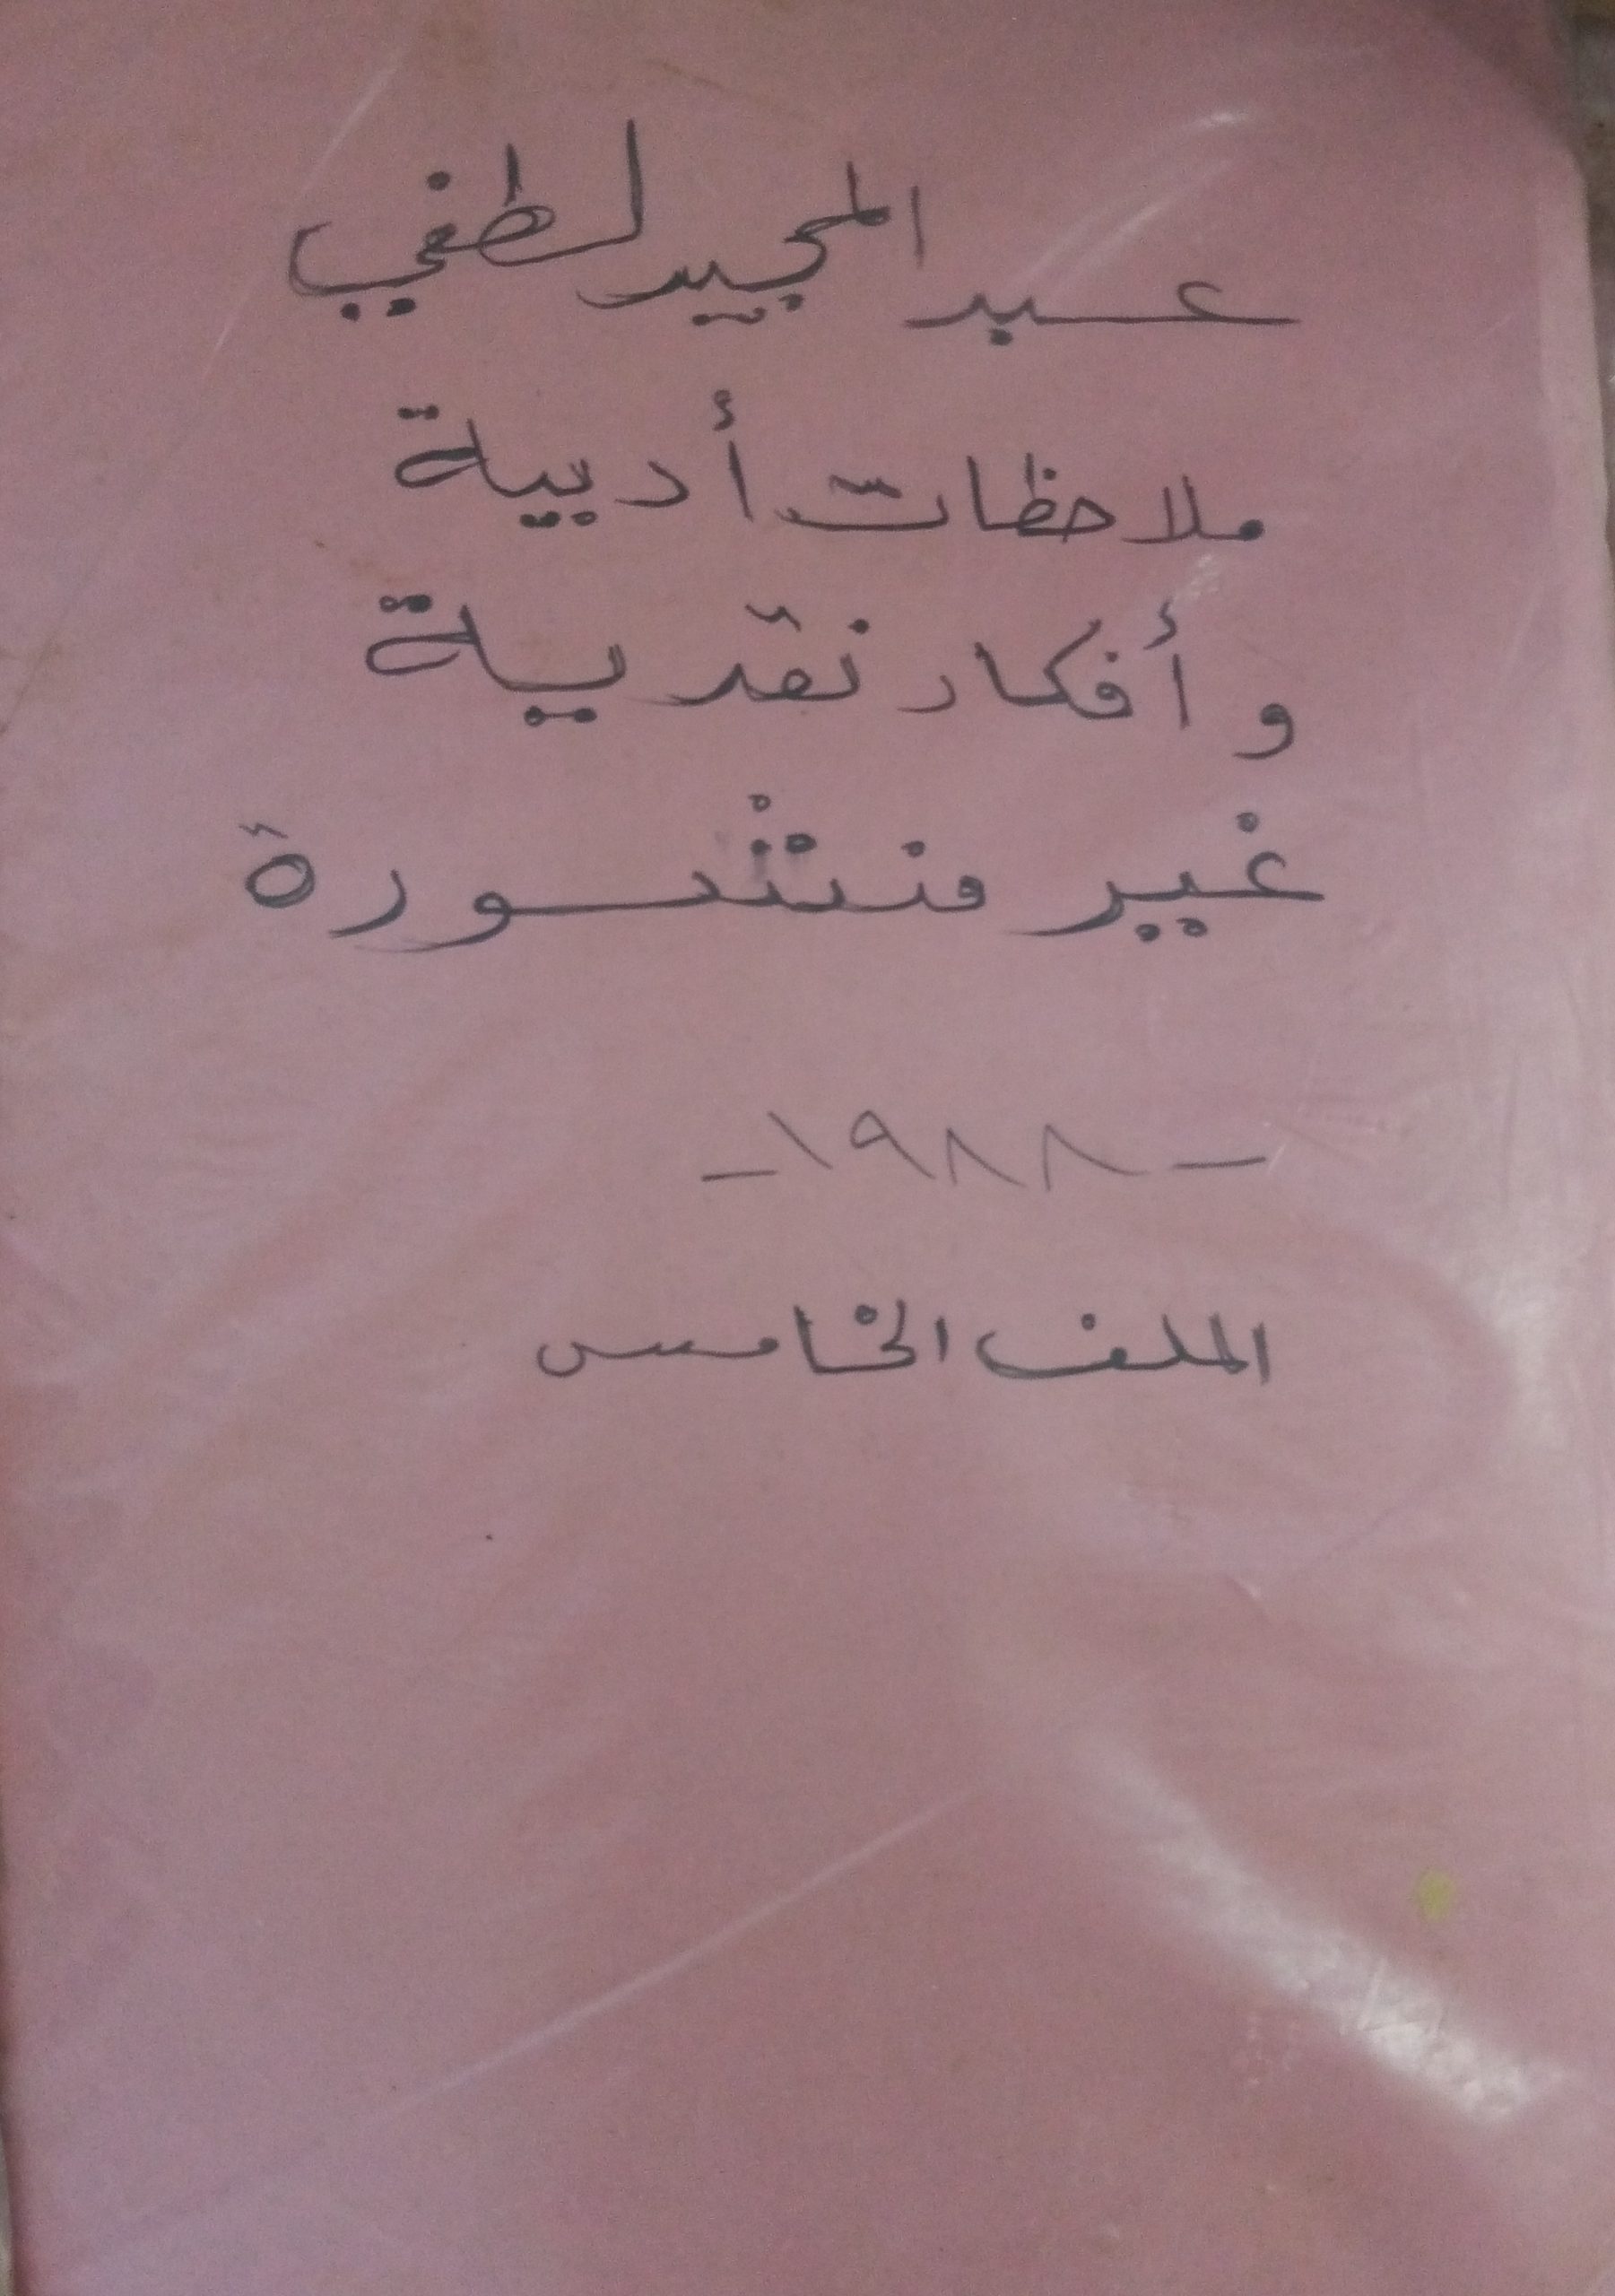 عبد المجيد لطفي
ملاحظات أدبية
و أفكار نقدية
غير منشورة
- ١٩٨٨ -
الملف الخامس